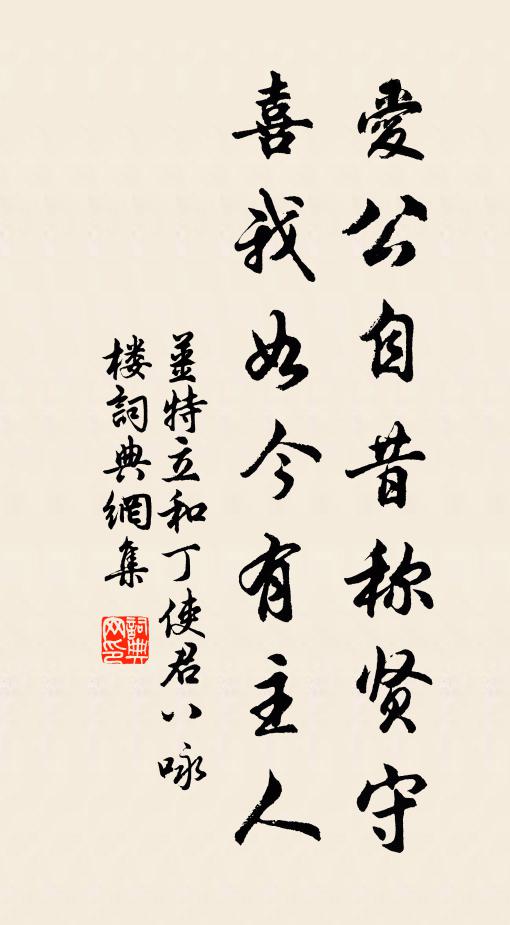 愛公自昔称贤守
喜我如今有主人
姜特立和丁使君八咏
楼詞典網集
詞典网印